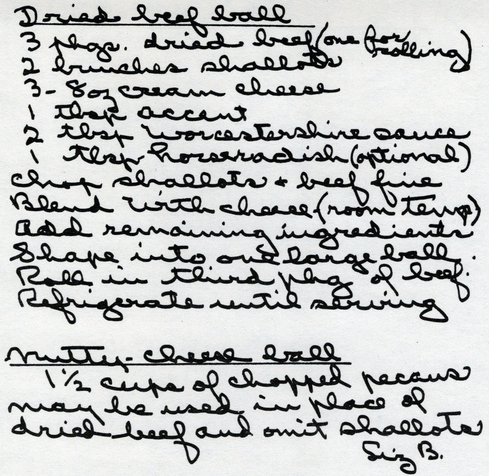 Dried beef ball
3 pkgs. dried beef (one for rolling)
2 bunches shallots
3 - 8oz cream cheese
1 tbsp accent
2 tbsp Worcestershire sauce
1 tbsp horseradish (optional)
Chop shallots + beef fine
Blend with cheese (room temp)
Add remaining ingredients
Shape into one large ball.
Roll in third pkg of beef.
Refrigerate until serving
Nutty-cheese ball
1 1/2 cups of chopped pecans
may be used in place of
dried beef and omit shallots
Siz B.